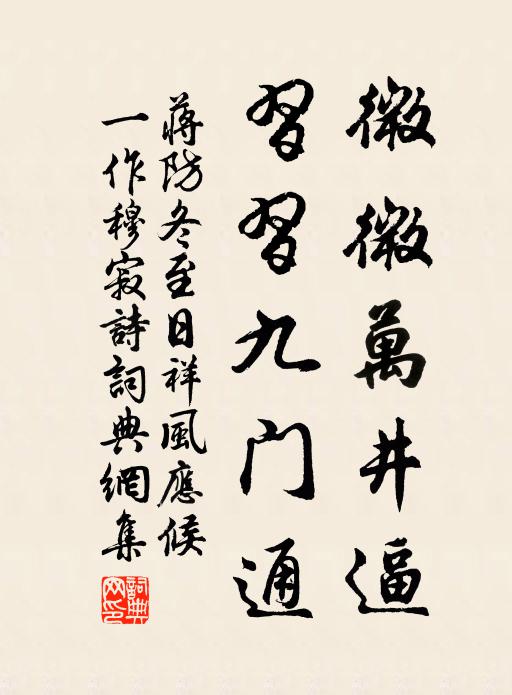 微微萬井逼
習習九门通
蔣防冬至日祥風應候
一作穆寂詩詞典網集
詞典
网印